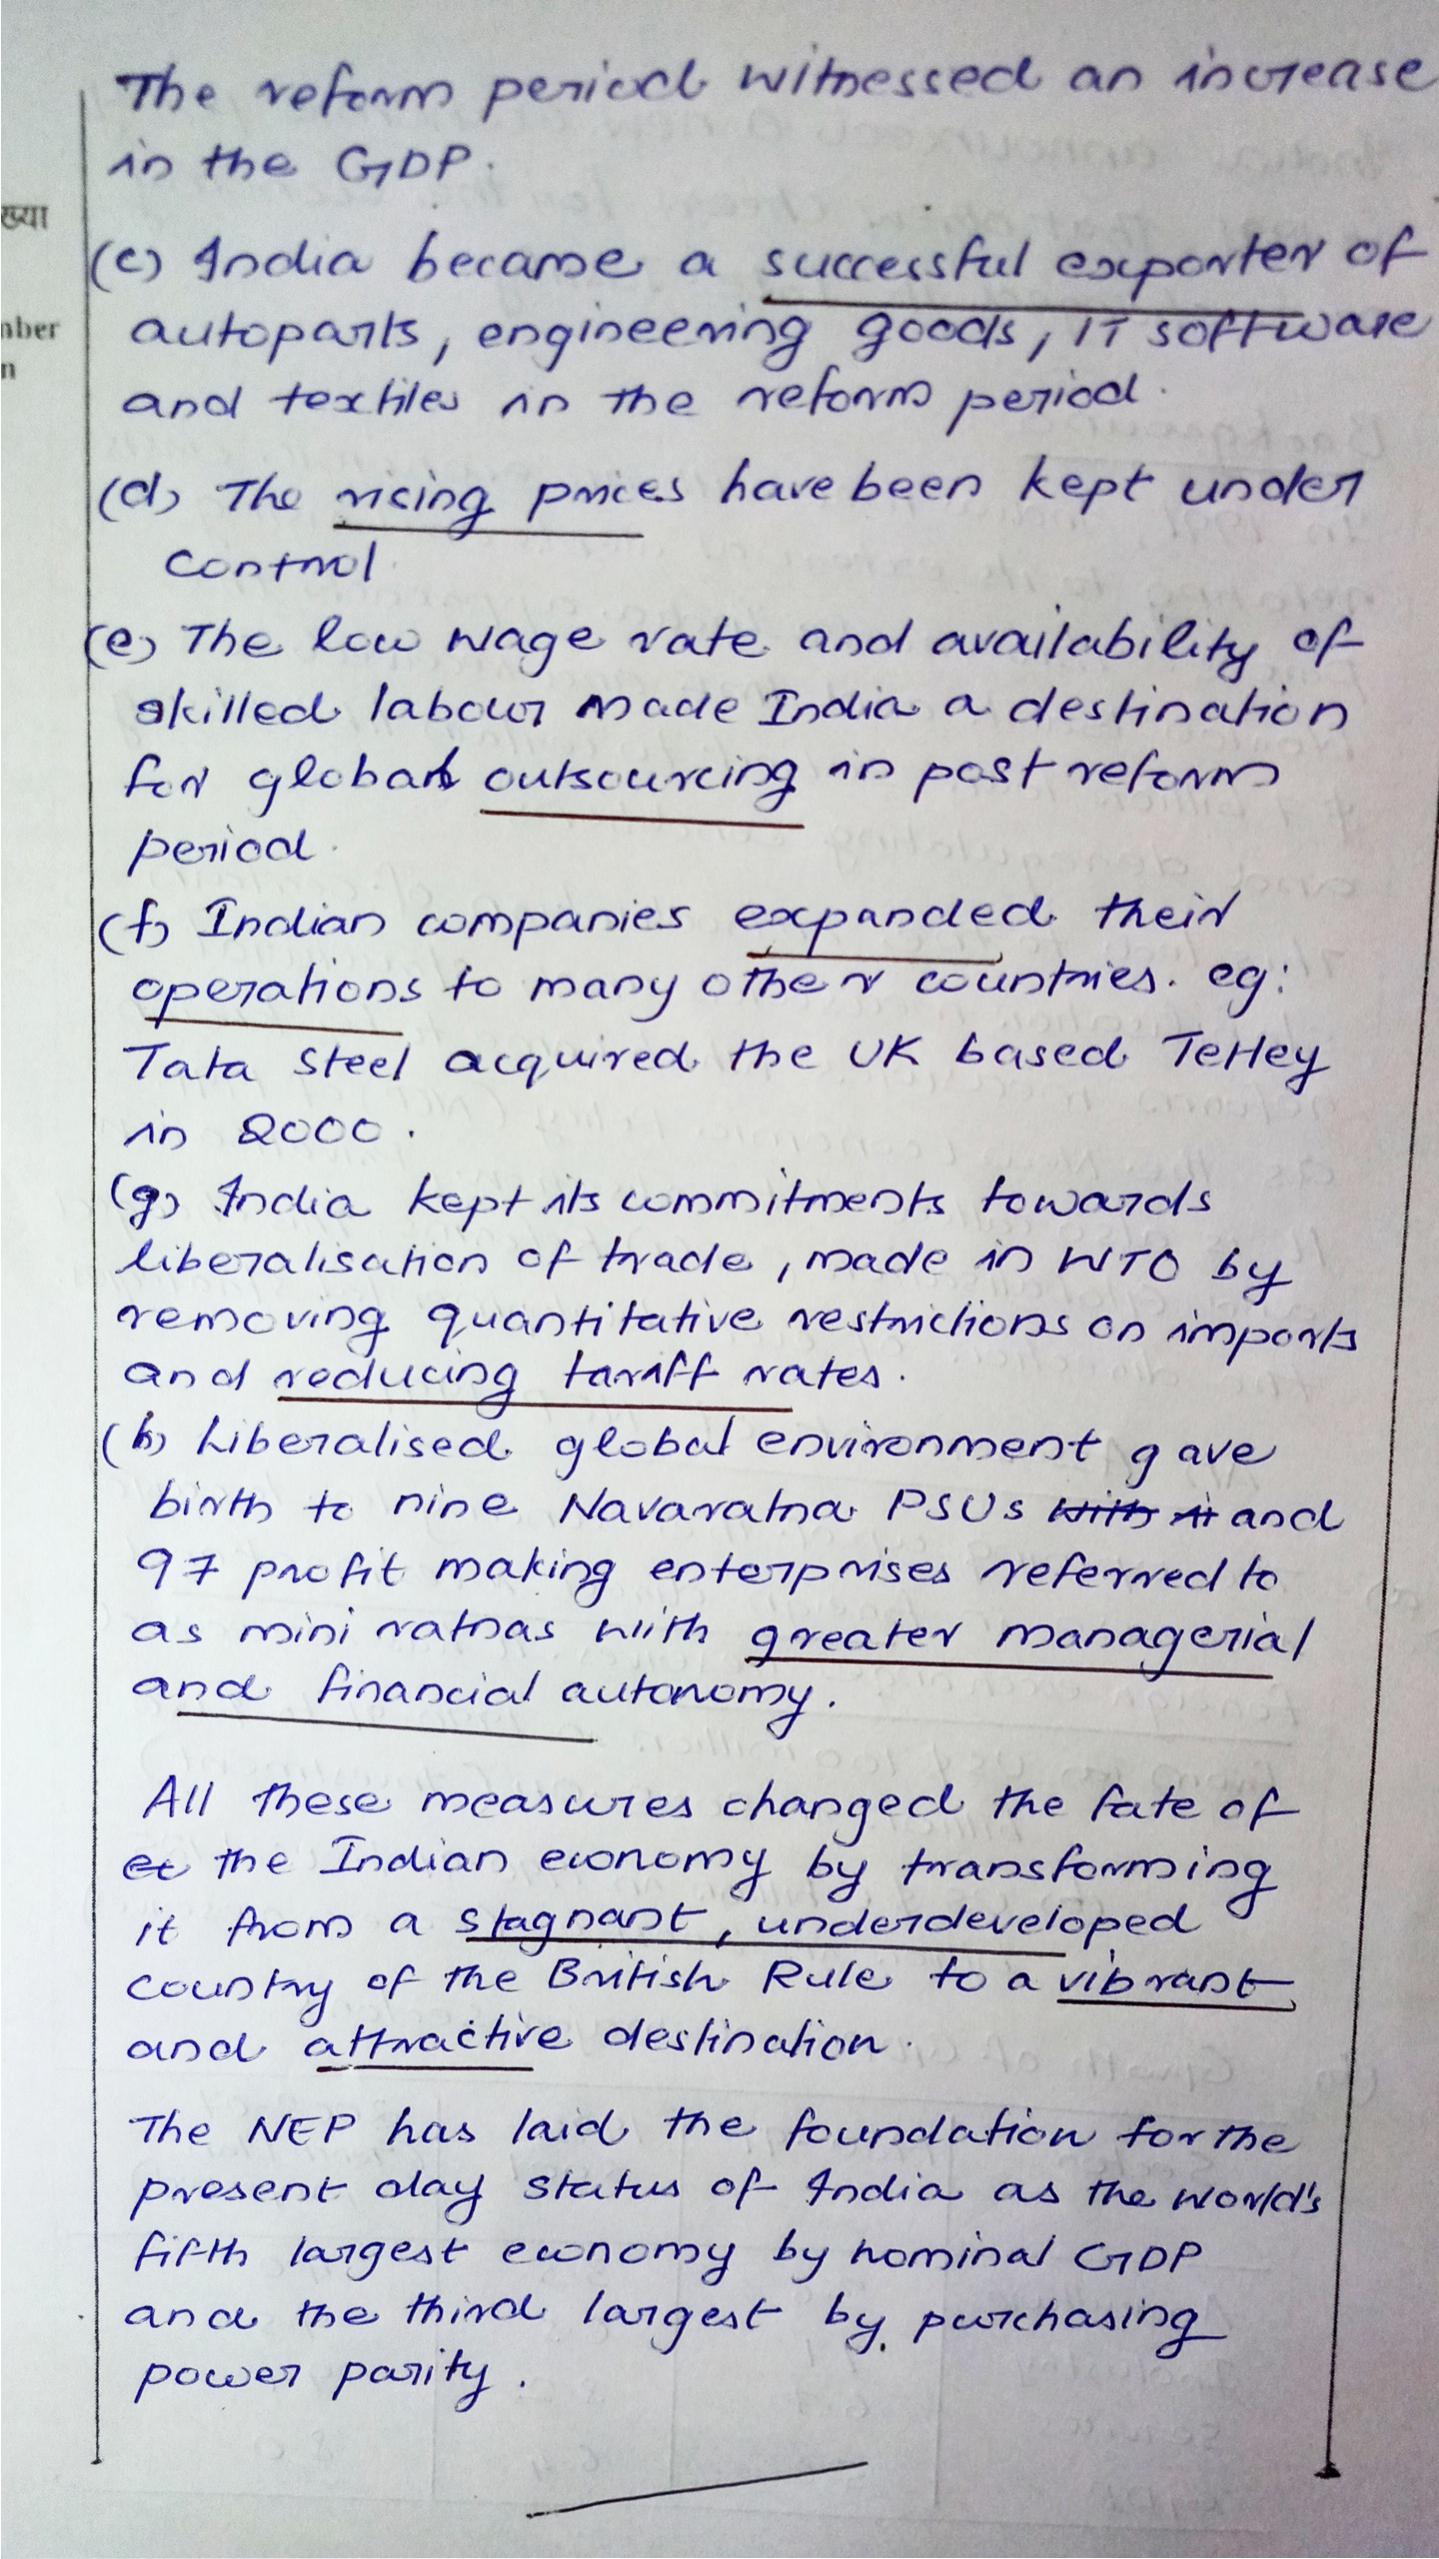 The reform period witnessed an increase
in the GDP.
ख्या
(c) India became a successful exporter of
nber
autoparts, engineering goods, IT software
n
and textiles in the reform period.
(d) The rising prices have been kept under
control
(e) The low wage rate and availability of
skilled labour made India a destination
for global outsourcing in post reform
period.
(f) Indian companies expanded their
operations to many other countries. eg:
Tata Steel acquired the UK based Tetley
in 2000.
(g) India kept its commitments towards
liberalisation of trade, made in WTO by
removing quantitative restrictions on imports
and reducing tariff rates.
(h) Liberalised global environment gave
birth to nine Navaratna PSUs with it and
97 profit making enterprises referred to
as mini ratnas with greater managerial
and financial autonomy.
All these measures changed the fate of
the Indian economy by transforming
it from a stagnant, underdeveloped
country of the British Rule to a vibrant
and attractive destination.
The NEP has laid the foundation for the
present day status of India as the world's
fifth largest economy by nominal GDP
and the third largest by purchasing
power parity.